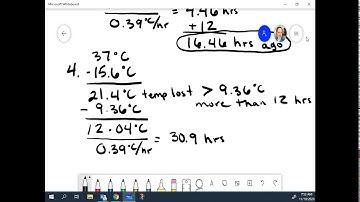 Microsoft Whiteboard
0.39°C/hr = 4.46 hrs
+12
16.46 hrs ago
37°C
4. -15.6°C
21.4°C temp lost > 9.36°C
- 9.36°C more than 12 hrs
12.04°C
0.39°C/hr = 30.9 hrs